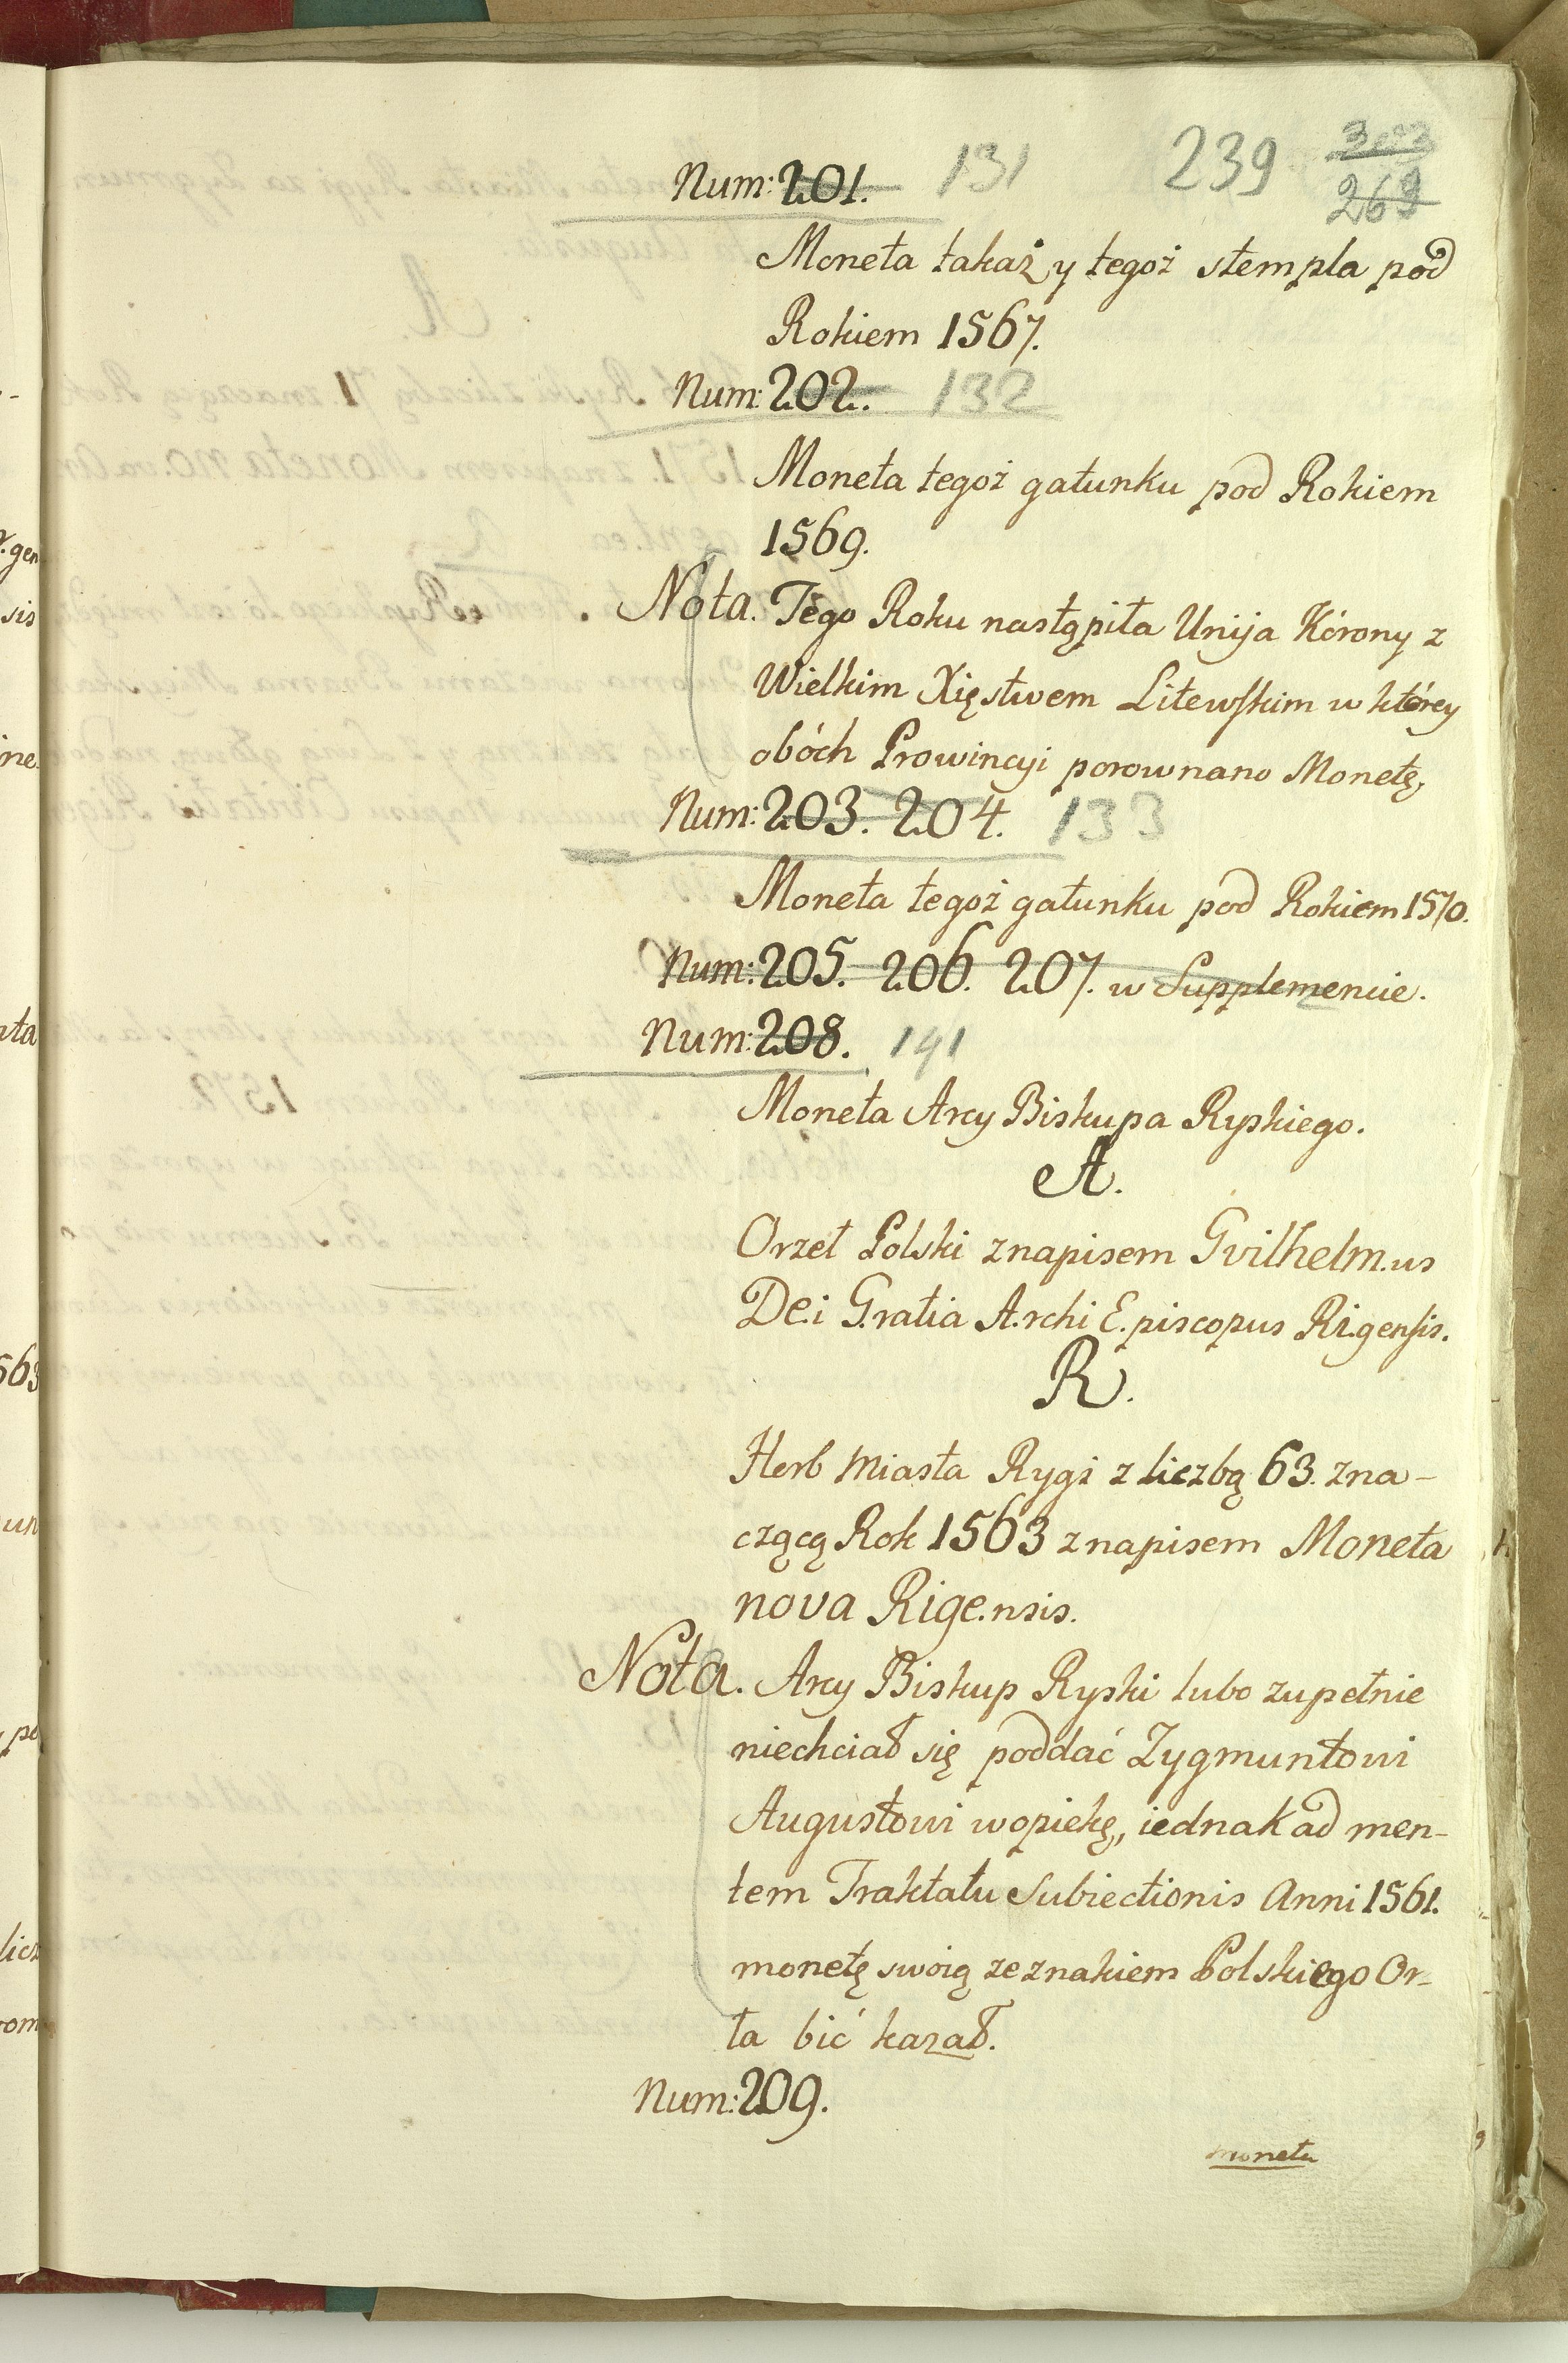 239 303
269
Num: 201. 131
Moneta takaż y tegoż stempla pod
Rokiem 1567.
Num: 202. 132
Moneta tegoż gatunku pod Rokiem
1569.
Nota. Tego Roku nastąpiła Unija Kórony z
Wielkim Xięstwem Litewskim w którey
obóch Prowincyi porownano Monetę,
Num: 203. 204. 133
Moneta tegoż gatunku pod Rokiem 1570.
Num: 205. 206. 207. w Supplemencie.
Num: 208. 141
Moneta Arcy Biskupa Ryskiego.
A.
Orzeł Polski znapisem Gvilhelm.us
De.i G.ratia A.rchi E.piscopus Ri.gensis.
R.
Herb Miasta Rygi z liczbą 63. zna-
czącą Rok 1563 znapisem Moneta
nova Rige.nsis.
Nota. Arcy Biskup Ryski lubo zupełnie
niechciał się poddać Zygmuntowi
Augustowi wopiekę, iednak ad men-
tem Traktatu Subiectionis Anni 1561.
monetę swoią ze znakiem Polskiego Or-
ła bić kazał.
Num: 209.
moneta